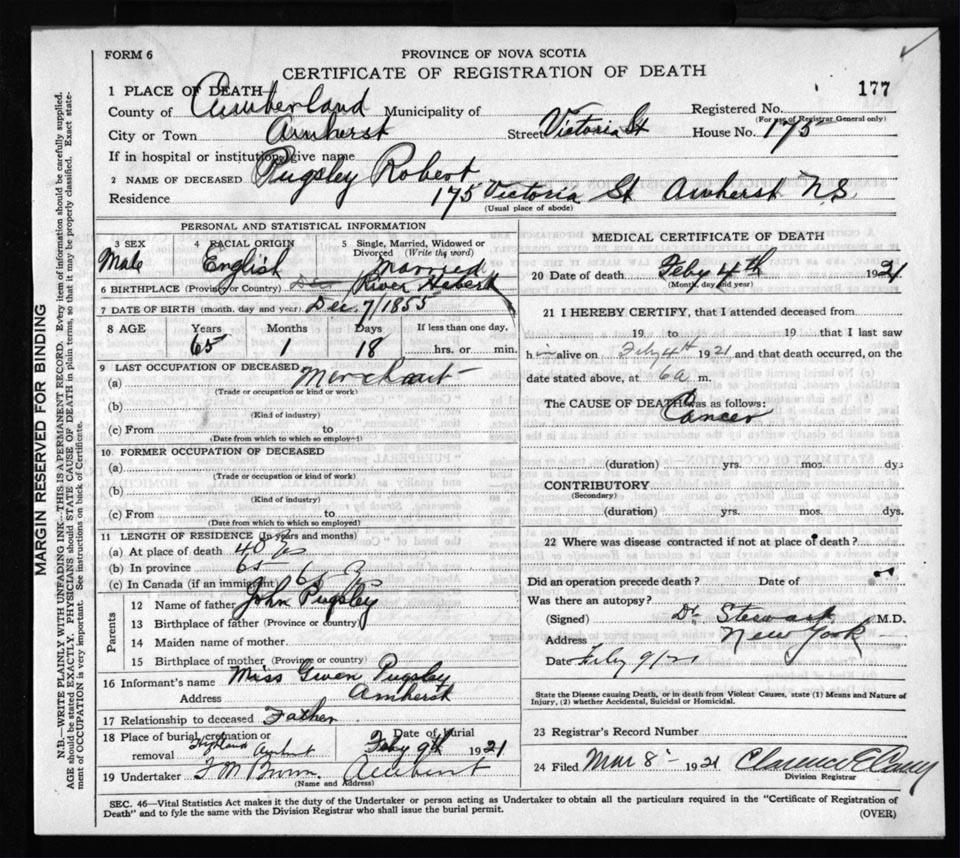 FORM 6
PROVINCE OF NOVA SCOTIA
CERTIFICATE OF REGISTRATION OF DEATH
177
1 PLACE OF DEATH
County of Cumberland Municipality of Registered No.
(For use of Registrar General only)
City or Town Amherst Street Victoria St House No. 175
If in hospital or institution, give name
2 NAME OF DECEASED Pugsley Robert
Residence 175 Victoria St Amherst N.S.
(Usual place of abode)
PERSONAL AND STATISTICAL INFORMATION
3 SEX 4 RACIAL ORIGIN 5 Single, Married, Widowed or Divorced (Write the word)
Male English Married
6 BIRTHPLACE (Province or Country) River Hebert
7 DATE OF BIRTH (month, day and year) Dec. 7/1855
8 AGE Years Months Days If less than one day,
65 1 18 hrs. or min.
9 LAST OCCUPATION OF DECEASED
(a) Merchant
(Trade or occupation or kind or work)
(b)
(Kind of industry)
(c) From to
(Date from which to which so employed)
10 FORMER OCCUPATION OF DECEASED
(a)
(Trade or occupation or kind of work)
(b)
(Kind of industry)
(c) From to
(Date from which to which so employed)
11 LENGTH OF RESIDENCE (In years and months)
(a) At place of death 40 Ys
(b) In province 65
(c) In Canada (if an immigrant) 65 Yrs
Parents
12 Name of father John Pugsley
13 Birthplace of father (Province or country)
14 Maiden name of mother
15 Birthplace of mother (Province or country)
16 Informant's name Miss Gwen Pugsley
Address Amherst
17 Relationship to deceased Father
18 Place of burial, cremation or removal Highland Amherst Date of burial Feby 9th 1921
19 Undertaker Amherst
(Name and Address)
MEDICAL CERTIFICATE OF DEATH
20 Date of death Feby 4th 1921
(Month, day and year)
21 I HEREBY CERTIFY, that I attended deceased from
19 to 19 that I last saw
him alive on Feby 4th 1921 and that death occurred, on the
date stated above, at 6a m.
The CAUSE OF DEATH was as follows:
Cancer
(duration) yrs. mos. dys
CONTRIBUTORY
(Secondary)
(duration) yrs. mos. dys.
22 Where was disease contracted if not at place of death?
Did an operation precede death? Date of
Was there an autopsy?
(Signed) Dr Stewart M.D.
Address New York
Date Feby 9/21
State the Disease causing Death, or in death from Violent Causes, state (1) Means and Nature of
Injury, (2) whether Accidental, Suicidal or Homicidal.
23 Registrar's Record Number
24 Filed Mar 8 1921 Clarence E Casey
Division Registrar
SEC. 46—Vital Statistics Act makes it the duty of the Undertaker or person acting as Undertaker to obtain all the particulars required in the "Certificate of Registration of
Death" and to fyle the same with the Division Registrar who shall issue the burial permit.
(OVER)
MARGIN RESERVED FOR BINDING
N.B.—WRITE PLAINLY WITH UNFADING INK—THIS IS A PERMANENT RECORD. Every item of information should be carefully supplied.
AGE should be stated EXACTLY. PHYSICIANS should STATE CAUSE OF DEATH in plain terms, so that it may be properly classified. Exact state-
ment of OCCUPATION is very important. See instructions on back of Certificate.